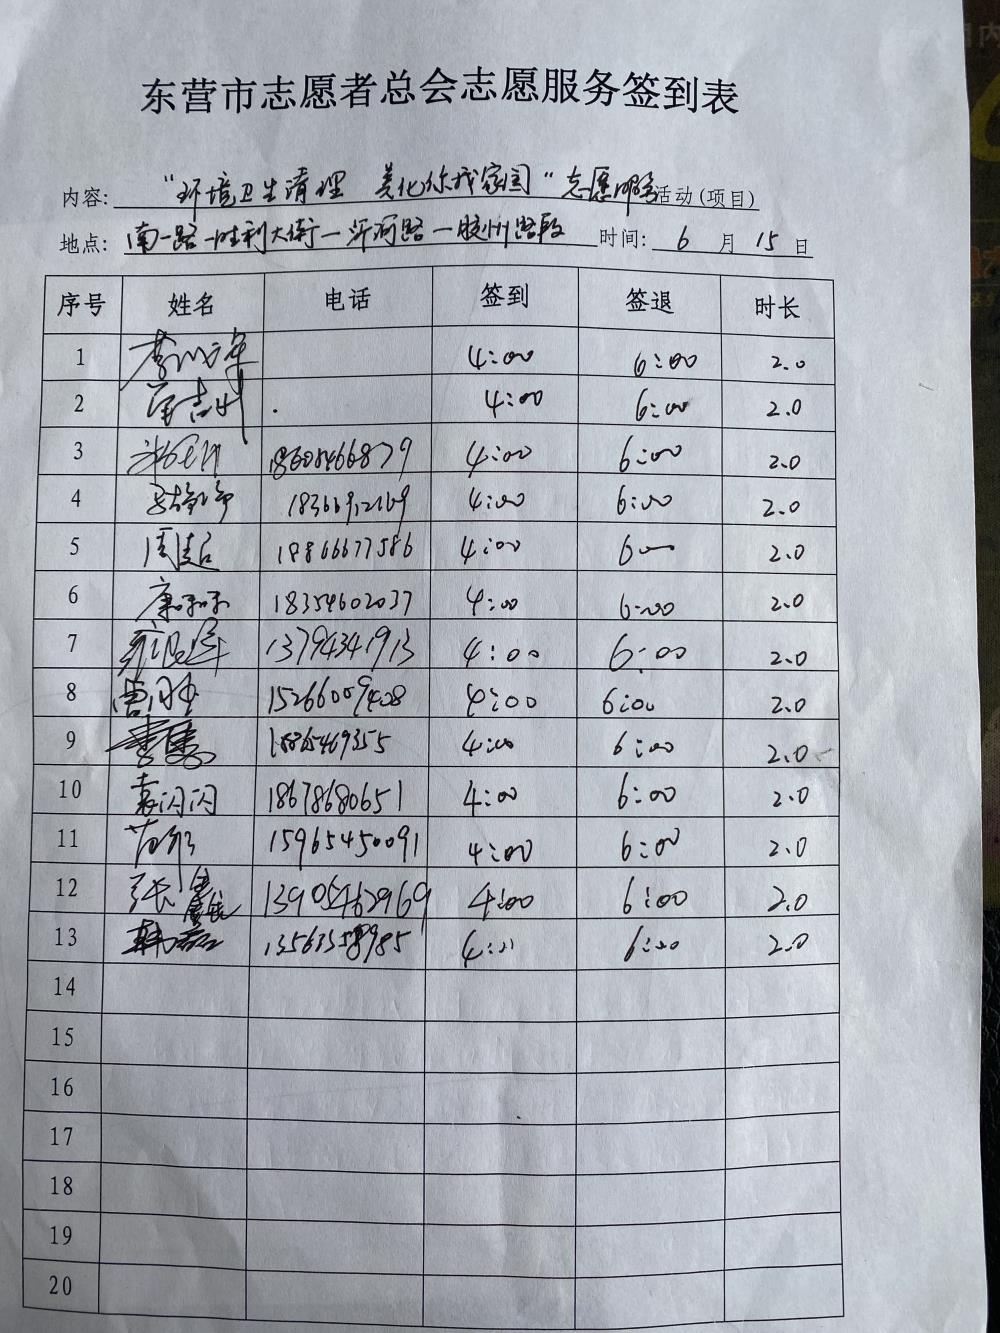 东营市志愿者总会志愿服务签到表
内容: "环境卫生清理 美化你我家园"志愿服务活动(项目)
地点: 南一路-胜利大街-沂河路-胶州路段 时间: 6 月 15 日
序号 姓名 电话 签到 签退 时长
1 4:00 6:00 2.0
2 4:00 6:00 2.0
3 18605466879 4:00 6:00 2.0
4 4:00 6:00 2.0
5 18866677586 4:00 6:00 2.0
6 康 18354602037 4:00 6:00 2.0
7 13794341913 4:00 6:00 2.0
8 曹 15266009408 4:00 6:00 2.0
9 李 18865469355 4:00 6:00 2.0
10 袁闪闪 18678680651 4:00 6:00 2.0
11 15965450091 4:00 6:00 2.0
12 张 13905462969 4:00 6:00 2.0
13 韩磊 13561358985 4:00 6:00 2.0
14
15
16
17
18
19
20